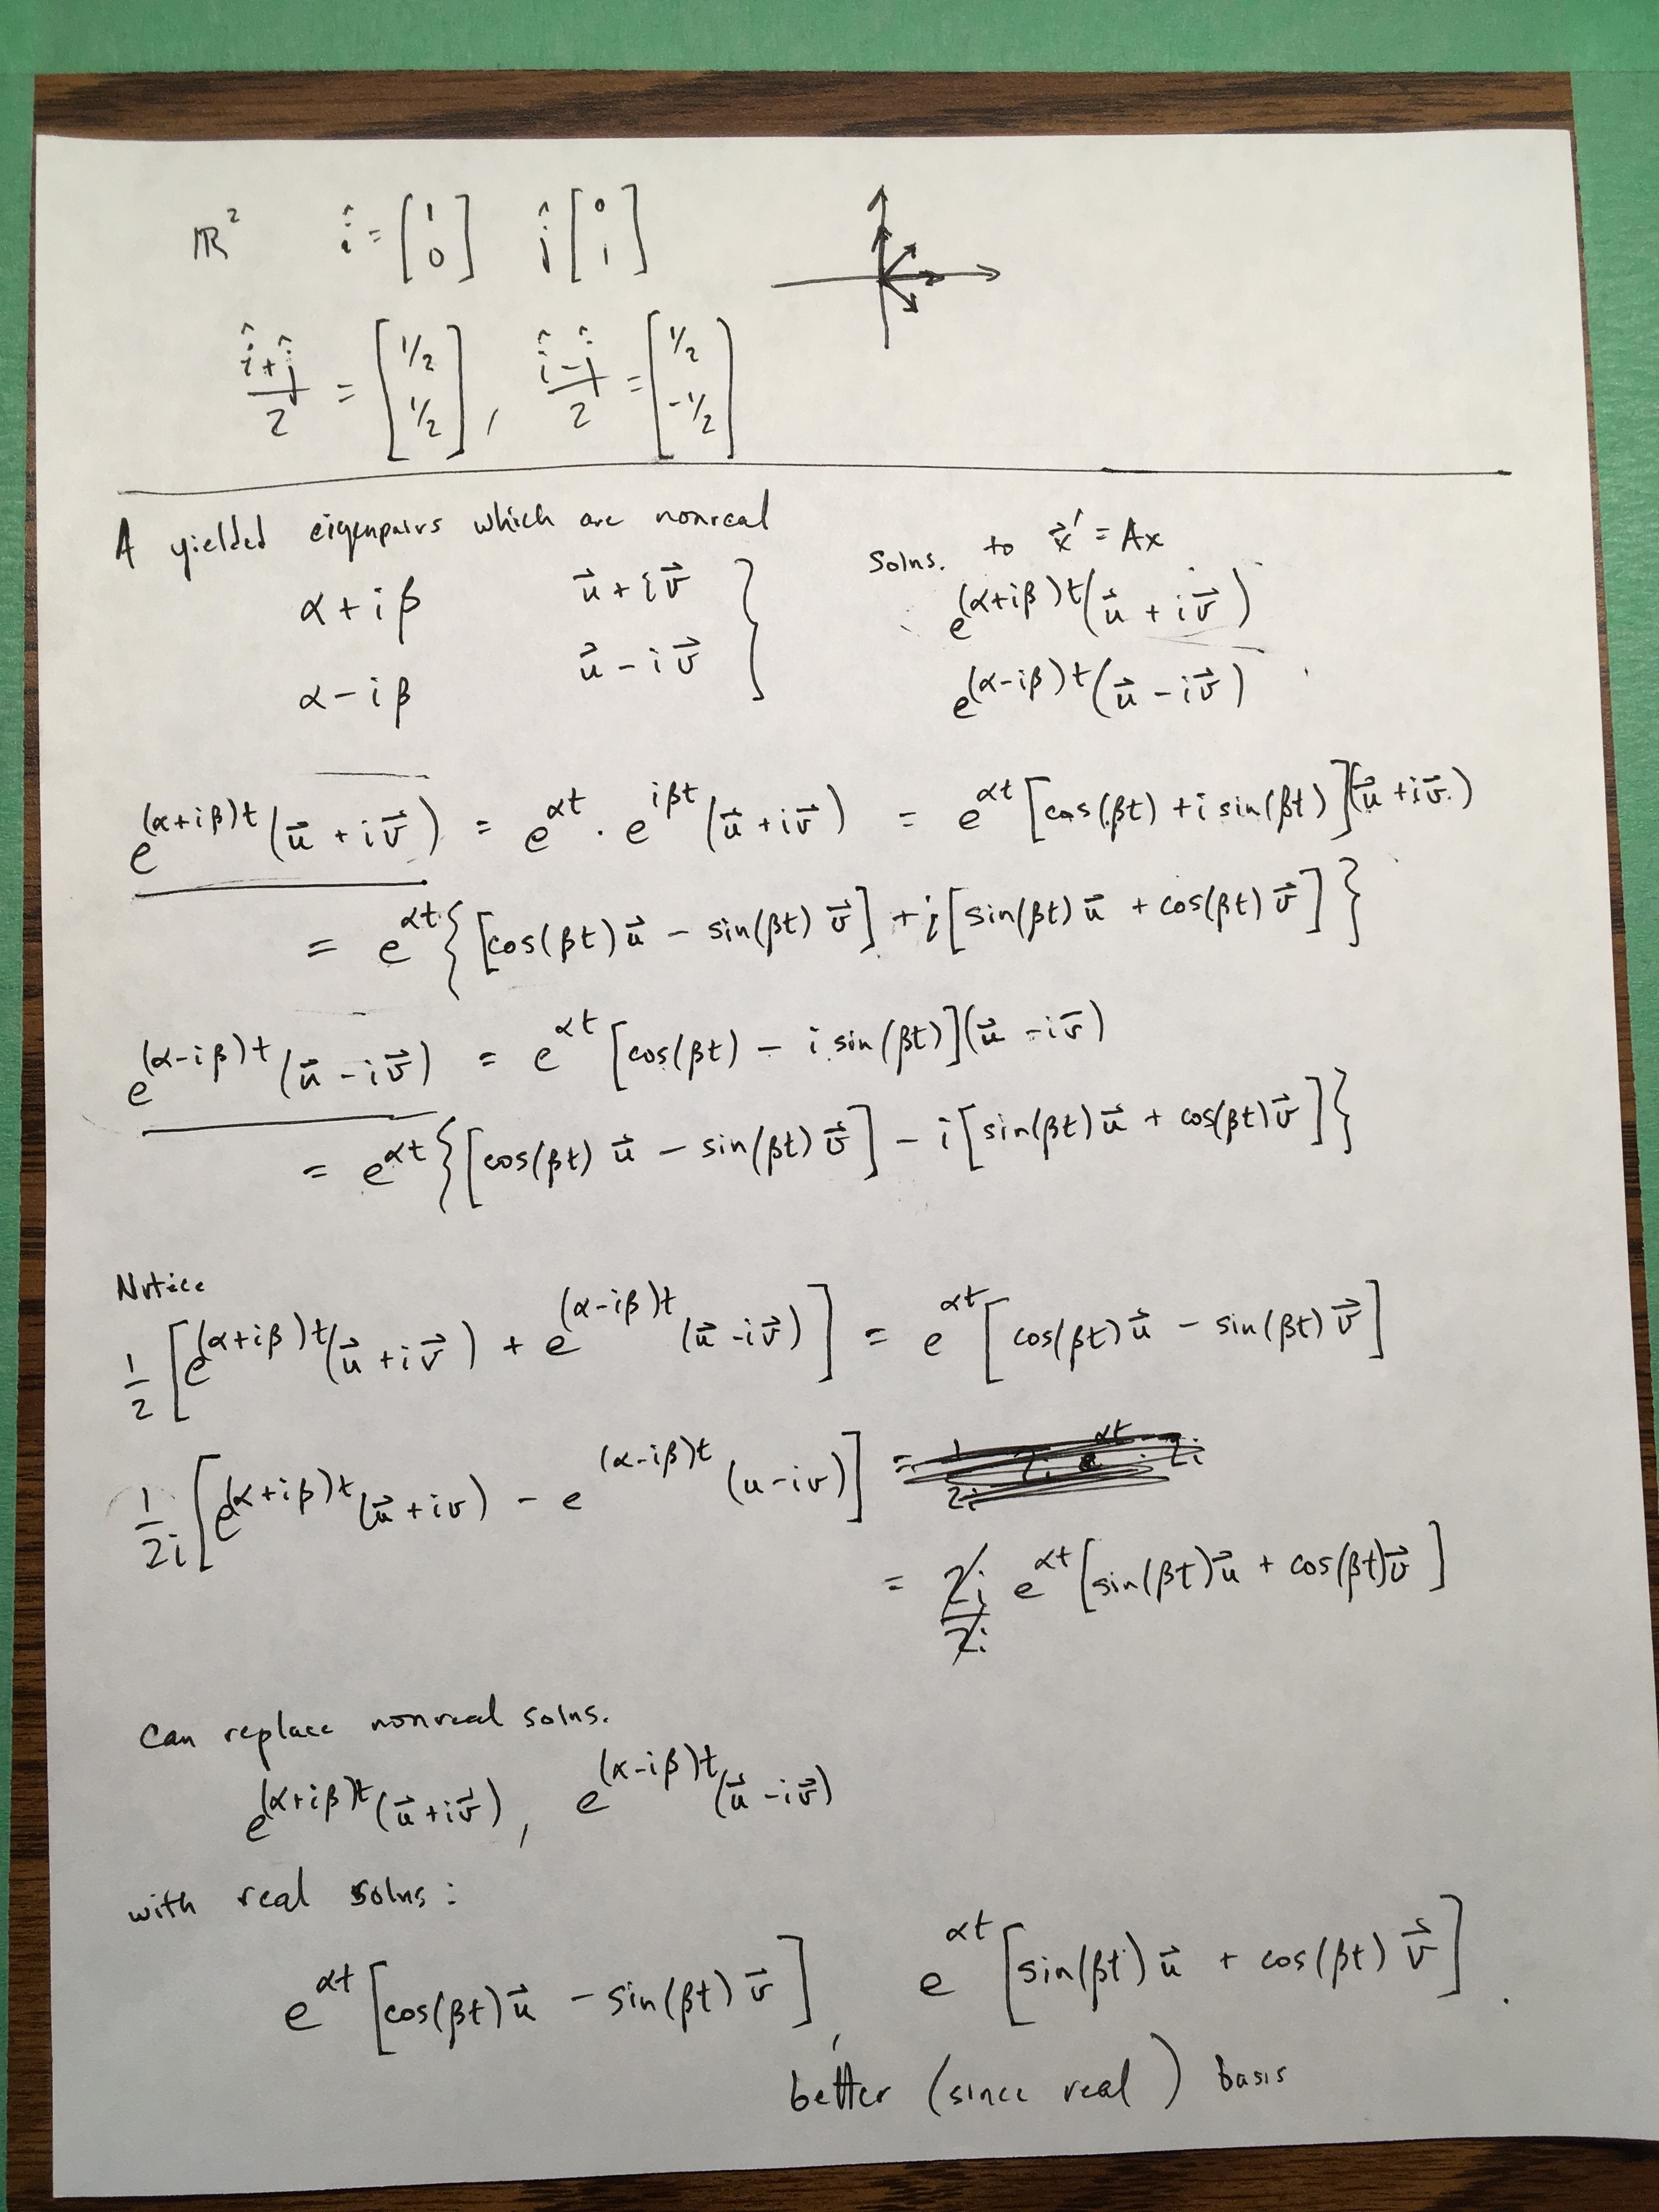 ℝ² î = [1 0] ĵ [0 1]
(î+ĵ)/2 = [1/2 1/2], (î-ĵ)/2 = [1/2 -1/2]
A yielded eigenpairs which are nonreal
Solns. to x⃗' = Ax
α + iβ u⃗ + iv⃗ }
α - iβ u⃗ - iv⃗
e^{(α+iβ)t}(u⃗ + iv⃗)
e^{(α-iβ)t}(u⃗ - iv⃗)
e^{(α+iβ)t}(u⃗ + iv⃗) = e^{αt} · e^{iβt}(u⃗ + iv⃗) = e^{αt}[cos(βt) + i sin(βt)](u⃗ + iv⃗)
= e^{αt}{[cos(βt)u⃗ - sin(βt)v⃗] + i[sin(βt)u⃗ + cos(βt)v⃗]}
e^{(α-iβ)t}(u⃗ - iv⃗) = e^{αt}[cos(βt) - i sin(βt)](u⃗ - iv⃗)
= e^{αt}{[cos(βt)u⃗ - sin(βt)v⃗] - i[sin(βt)u⃗ + cos(βt)v⃗]}
Notice
1/2 [e^{(α+iβ)t}(u⃗ + iv⃗) + e^{(α-iβ)t}(u⃗ - iv⃗)] = e^{αt}[cos(βt)u⃗ - sin(βt)v⃗]
1/2i [e^{(α+iβ)t}(u⃗ + iv) - e^{(α-iβ)t}(u - iv)] =
= 2i/2i e^{αt}[sin(βt)u⃗ + cos(βt)v⃗]
Can replace nonreal solns.
e^{(α+iβ)t}(u⃗ + iv⃗), e^{(α-iβ)t}(u⃗ - iv⃗)
with real solns:
e^{αt}[cos(βt)u⃗ - sin(βt)v⃗], e^{αt}[sin(βt)u⃗ + cos(βt)v⃗].
better (since real) basis